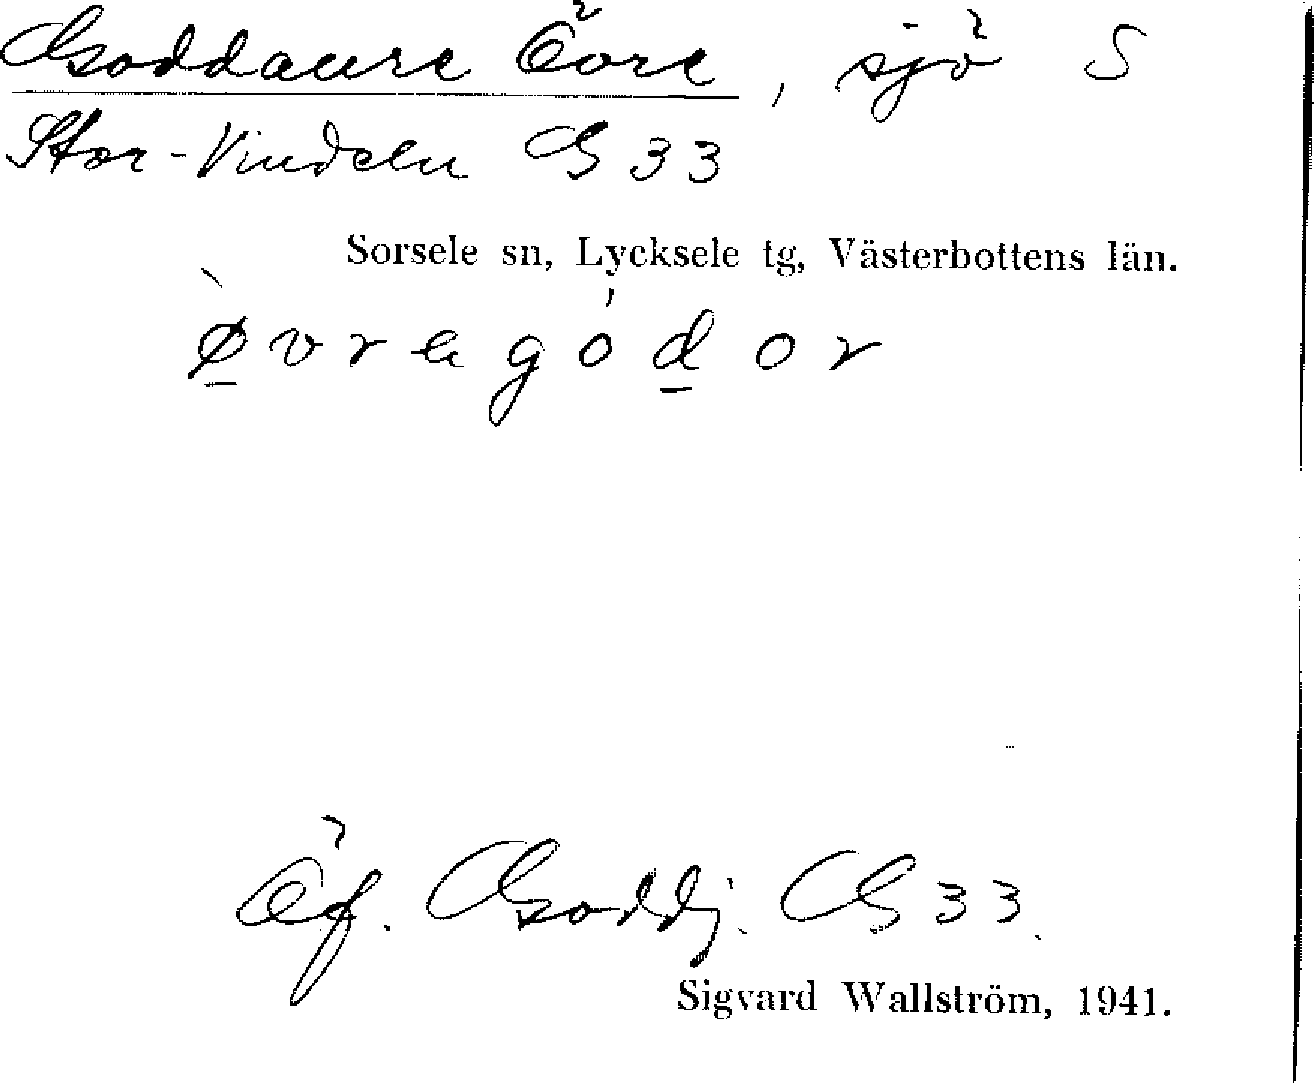 Goddaure Övre, sjö S
Stor-Vindeln G 33
Sorsele sn, Lycksele tg, Västerbottens län.
ø̱̀vragóḏor
Öf. Goddj. G 33.
Sigvard Wallström, 1941.